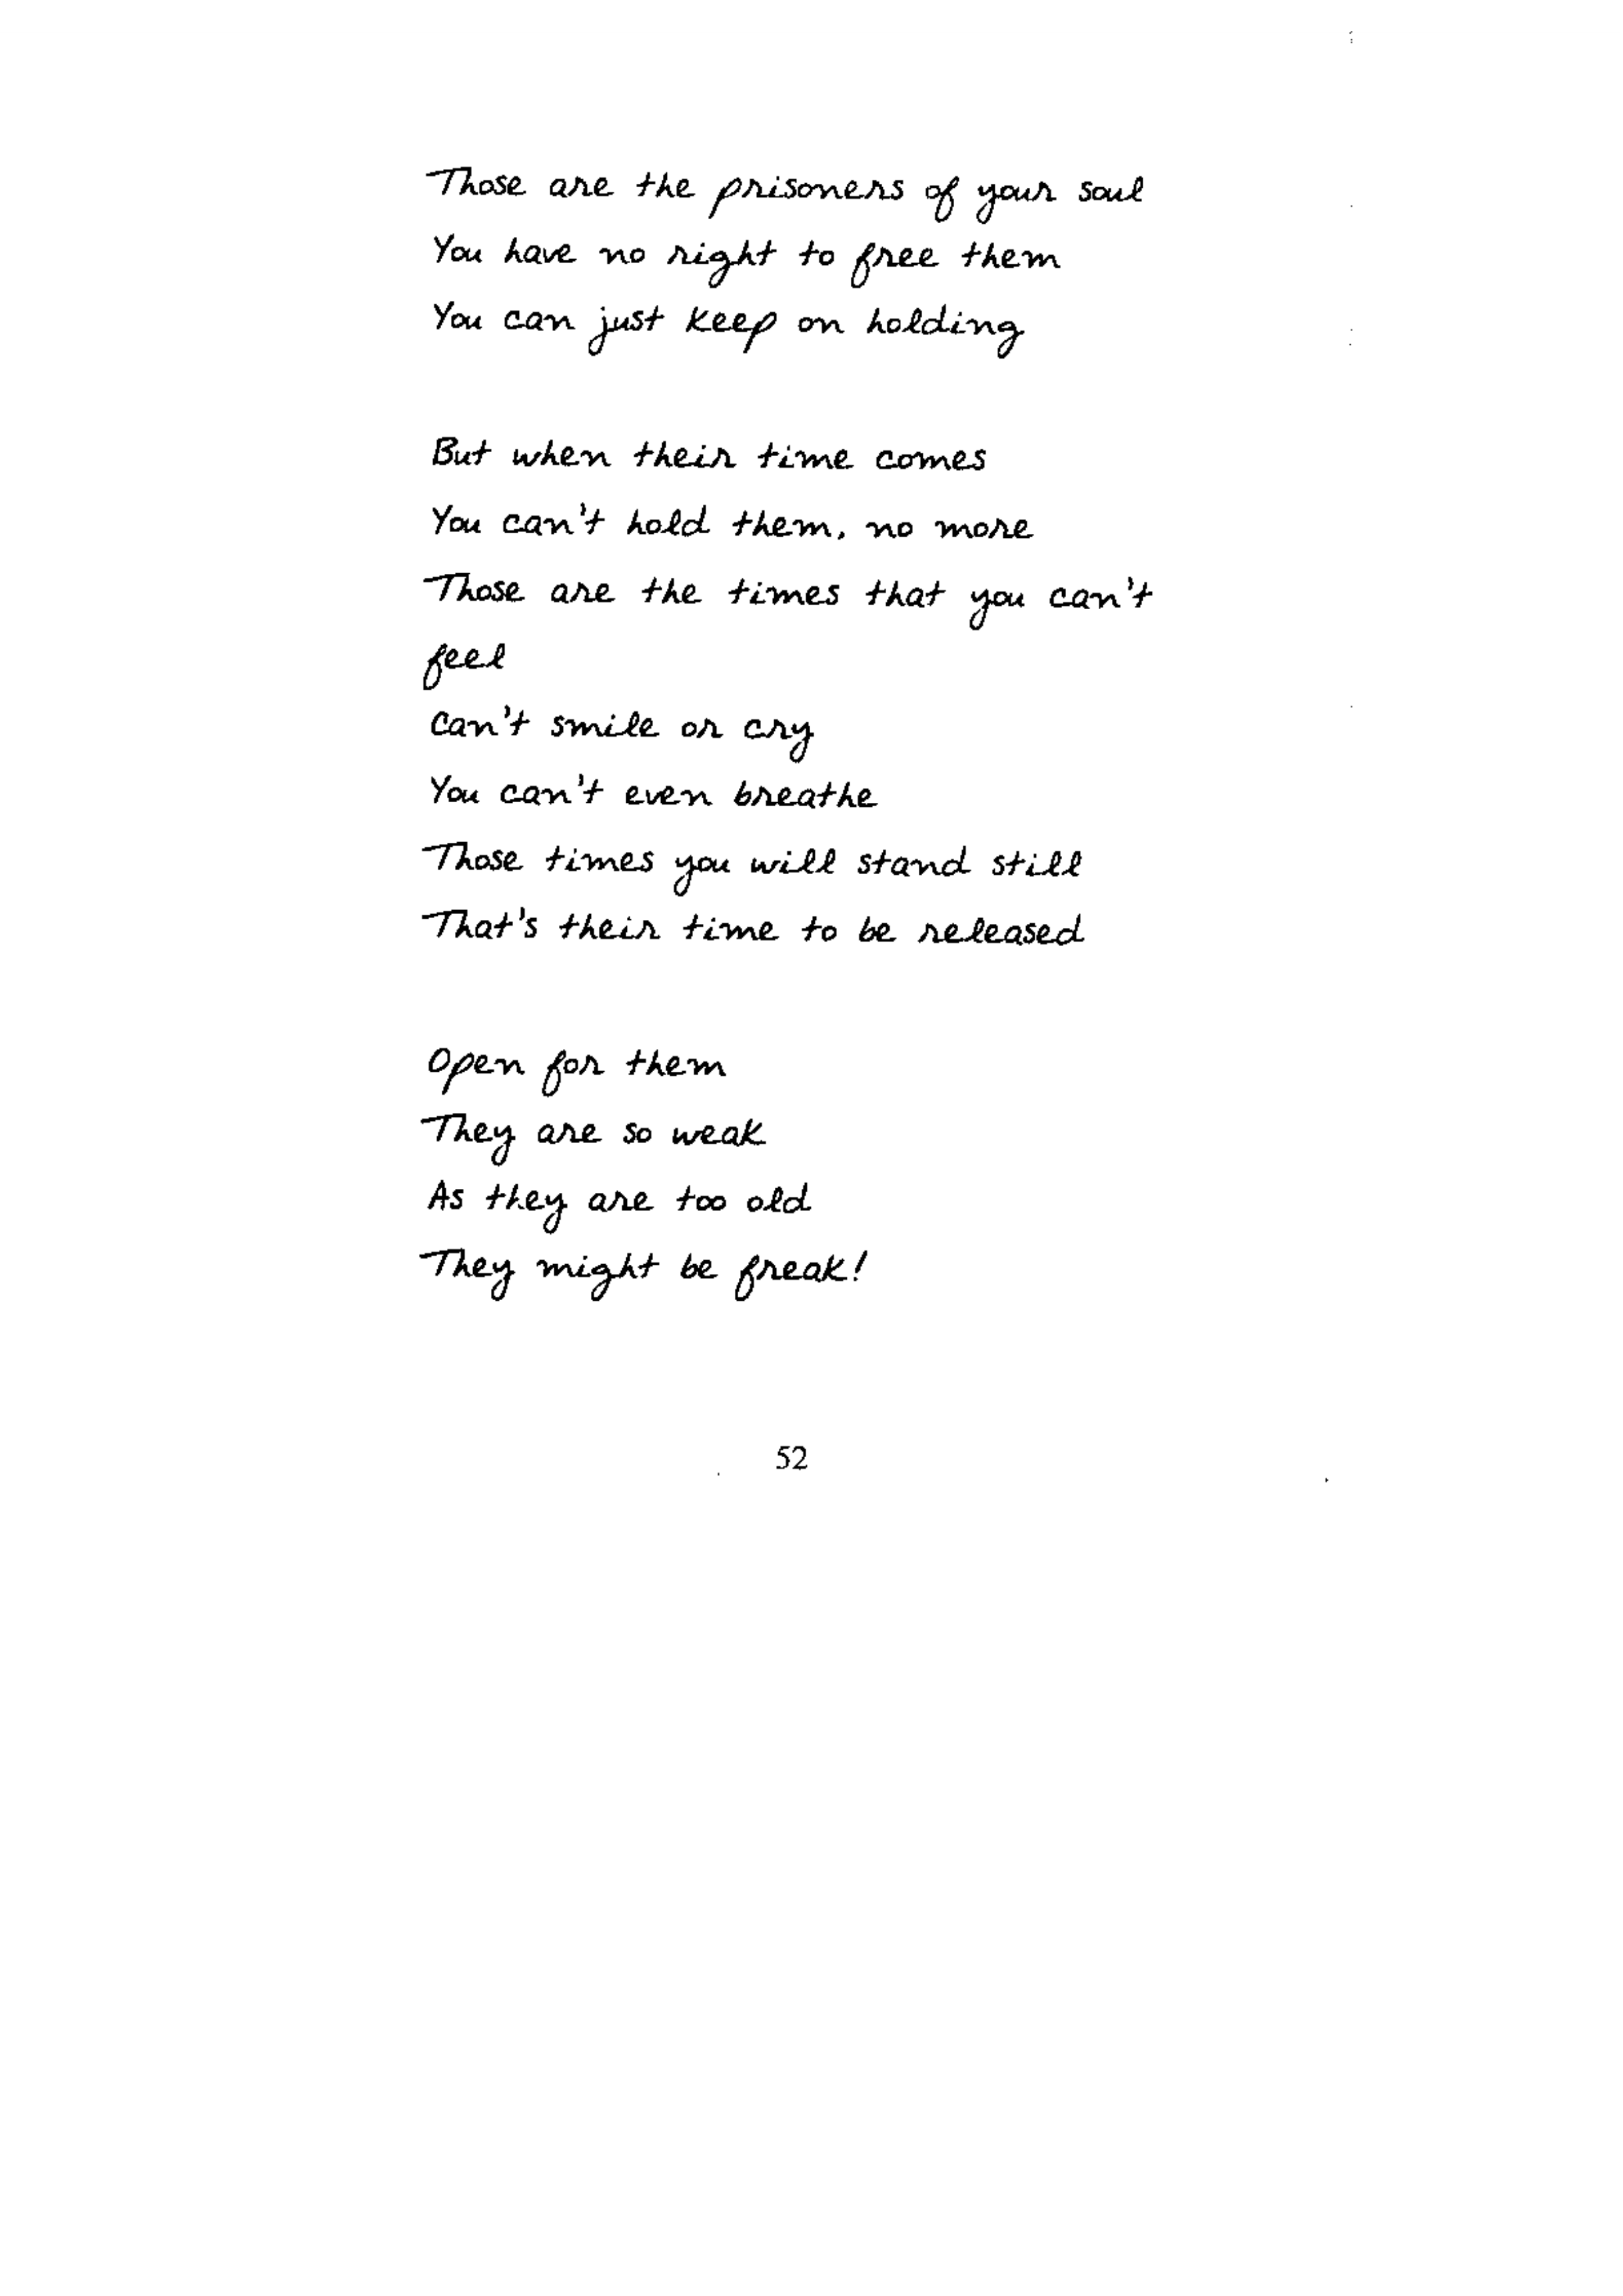 Those are the prisoners of your soul
You have no right to free them
You can just keep on holding
But when their time comes
You can't hold them, no more
Those are the times that you can't
feel
Can't smile or cry
You can't even breathe
Those times you will stand still
That's their time to be released
Open for them
They are so weak
As they are too old
They might be freak!
52